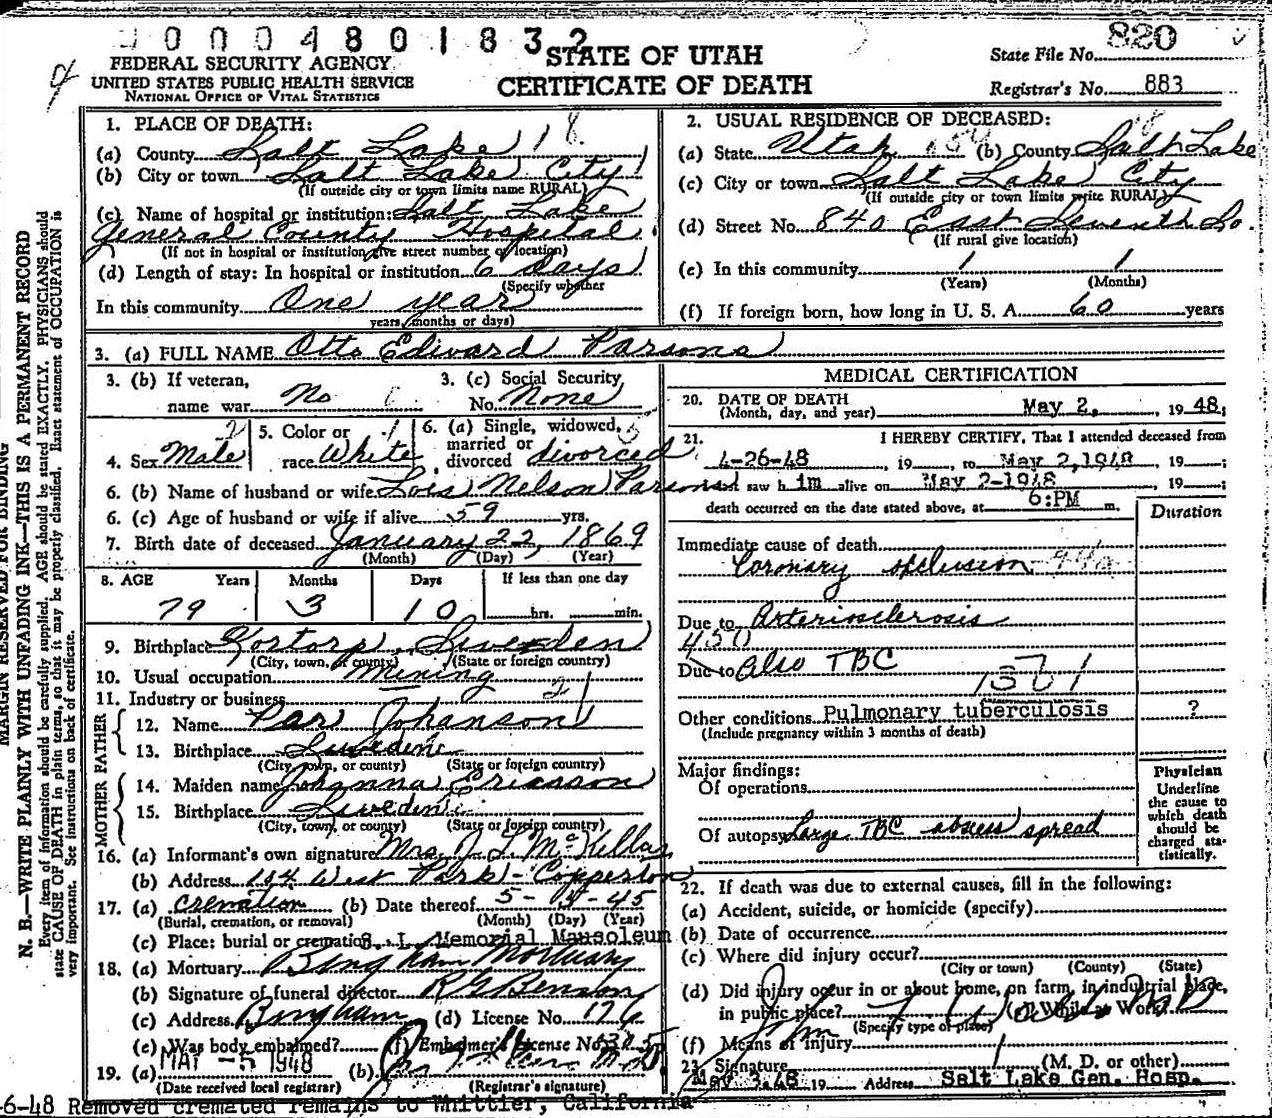 0000480183 2
STATE OF UTAH
CERTIFICATE OF DEATH
FEDERAL SECURITY AGENCY
UNITED STATES PUBLIC HEALTH SERVICE
NATIONAL OFFICE OF VITAL STATISTICS
State File No. 820
Registrar's No. 883
MARGIN RESERVED FOR BINDING
N. B.—WRITE PLAINLY WITH UNFADING INK—THIS IS A PERMANENT RECORD
Every item of information should be carefully supplied. AGE should be stated EXACTLY. PHYSICIANS should
state CAUSE OF DEATH in plain terms, so that it may be properly classified. Exact statement of OCCUPATION is
very important. See instructions on back of certificate.
1. PLACE OF DEATH:
(a) County Salt Lake 18
(b) City or town Salt Lake City
(If outside city or town limits name RURAL)
(c) Name of hospital or institution: Salt Lake
General County Hospital
(If not in hospital or institution give street number or location)
(d) Length of stay: In hospital or institution 6 days
(Specify whether
In this community One year
years, months or days)
2. USUAL RESIDENCE OF DECEASED:
(a) State Utah (b) County Salt Lake
(c) City or town Salt Lake City
(If outside city or town limits write RURAL)
(d) Street No. 840 East Seventh So.
(If rural give location)
(e) In this community 1 1
(Years) (Months)
(f) If foreign born, how long in U. S. A. 60 years
3. (a) FULL NAME Otto Edward Parsons
3. (b) If veteran,
name war No
3. (c) Social Security
No. None
4. Sex Male
5. Color or
race White
6. (a) Single, widowed,
married or
divorced divorced
6. (b) Name of husband or wife Lois Nelson Parsons
6. (c) Age of husband or wife if alive 59 yrs.
7. Birth date of deceased January 22, 1869
(Month) (Day) (Year)
8. AGE Years Months Days If less than one day
79 3 10 hrs. min.
9. Birthplace Sweden
(City, town, or county) (State or foreign country)
10. Usual occupation Mining
11. Industry or business
FATHER
12. Name Johanson
13. Birthplace Sweden
(City, town, or county) (State or foreign country)
MOTHER
14. Maiden name Johanna Ericsson
15. Birthplace Sweden
(City, town, or county) (State or foreign country)
16. (a) Informant's own signature Mrs. J. L. McKellar
(b) Address 104 West Park - Copperton
17. (a) Cremation (b) Date thereof 5- -45
(Burial, cremation, or removal) (Month) (Day) (Year)
(c) Place: burial or cremation S. L. Memorial Mausoleum
18. (a) Mortuary Bingham Mortuary
(b) Signature of funeral director R G Benson
(c) Address Bingham (d) License No. 176
(e) Was body embalmed? (f) Embalmer's License No.
19. (a) MAY -5 1948 (b)
(Date received local registrar) (Registrar's signature)
MEDICAL CERTIFICATION
20. DATE OF DEATH
(Month, day, and year) May 2, , 19 48;
21. I HEREBY CERTIFY, That I attended deceased from
4-26-48 , 19 , to May 2, 1948 , 19 ;
last saw h im alive on May 2-1948 , 19 ;
death occurred on the date stated above, at 6:PM m.
Duration
Immediate cause of death
Coronary occlusion
Due to Arteriosclerosis
450
Due to Also TBC
Other conditions Pulmonary tuberculosis ?
(Include pregnancy within 3 months of death)
Major findings:
Of operations
Of autopsy Large TBC abscess spread
Physician
Underline
the cause to
which death
should be
charged sta-
tistically.
22. If death was due to external causes, fill in the following:
(a) Accident, suicide, or homicide (specify)
(b) Date of occurrence
(c) Where did injury occur?
(City or town) (County) (State)
(d) Did injury occur in or about home, on farm, in industrial place,
in public place? While at Work?
(Specify type of place)
(f) Means of injury
23. Signature John (M. D. or other)
May 3, 48 19 Address Salt Lake Gen. Hosp.
-6-48 Removed cremated remains to Whittier, California